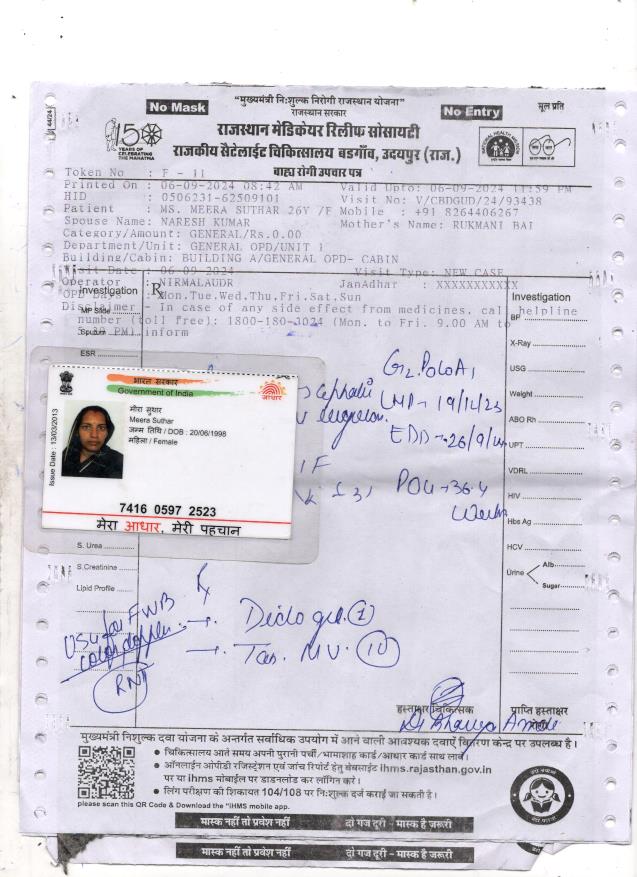 1 44/24
No Mask
"मुख्यमंत्री नि:शुल्क निरोगी राजस्थान योजना"
राजस्थान सरकार
No Entry
मूल प्रति
150
YEARS OF
CELEBRATING
THE MAHATMA
राजस्थान मेडिकेयर रिलीफ सोसायटी
राजकीय सैटेलाईट चिकित्सालय बडगाँव, उदयपुर (राज.)
NATIONAL HEALTH MISSION
बाह्य रोगी उपचार पत्र
Token No : F - 11
Printed On : 06-09-2024 08:42 AM Valid Upto: 06-09-2024 11:59 PM
HID : 0506231-62509101 Visit No: V/CBDGUD/24/93438
Patient : MS. MEERA SUTHAR 26Y /F Mobile : +91 8264406267
Spouse Name: NARESH KUMAR Mother's Name: RUKMANI BAI
Category/Amount: GENERAL/Rs.0.00
Department/Unit: GENERAL OPD/UNIT 1
Building/Cabin: BUILDING A/GENERAL OPD- CABIN
Visit Date : 06-09-2024 Visit Type: NEW CASE
Operator : NIRMALAUDR JanAdhar : XXXXXXXXXXX
OPD Days : Mon.Tue.Wed.Thu.Fri.Sat.Sun
Disclaimer - In case of any side effect from medicines. call helpline
number (toll free): 1800-180-3024 (Mon. to Fri. 9.00 AM to
PM) inform
Investigation
Rx
MP Slide
Sputum
ESR
Investigation
BP
X-Ray
USG
Weight
ABO Rh
UPT
VDRL
HIV
Hbs Ag
HCV
Urine
Alb.
Sugar
भारत सरकार
Government of India
आधार
Issue Date : 13/03/2013
मीरा सुथार
Meera Suthar
जन्म तिथि / DOB : 20/06/1998
महिला / Female
7416 0597 2523
मेरा आधार, मेरी पहचान
G2 P0L0A1
LMP - 19/12/23
EDD → 26/9/24
POG → 36.4
weeks
S. Urea
S.Creatinine
Lipid Profile
Rx
USG for FWB
color doppler
→ Diclo gel (1)
→ Tab. MV. (10)
हस्ताक्षर चिकित्सक
प्राप्ति हस्ताक्षर
मुख्यमंत्री निशुल्क दवा योजना के अन्तर्गत सर्वाधिक उपयोग में आने वाली आवश्यक दवाऐं वितरण केन्द्र पर उपलब्ध है।
• चिकित्सालय आते समय अपनी पुरानी पर्ची/भामाशाह कार्ड/आधार कार्ड साथ लावें।
• ऑनलाईन ओपीडी रजिस्ट्रेशन एवं जांच रिपोर्ट हेतु वेबसाईट ihms.rajasthan.gov.in
पर या ihms मोबाईल पर डाउनलोड कर लॉगिन करे।
• लिंग परीक्षण की शिकायत 104/108 पर नि:शुल्क दर्ज कराई जा सकती है।
please scan this QR Code & Download the "iHMS mobile app.
मास्क नहीं तो प्रवेश नहीं दो गज दूरी - मास्क है जरूरी
मास्क नहीं तो प्रवेश नहीं दो गज दूरी - मास्क है जरूरी